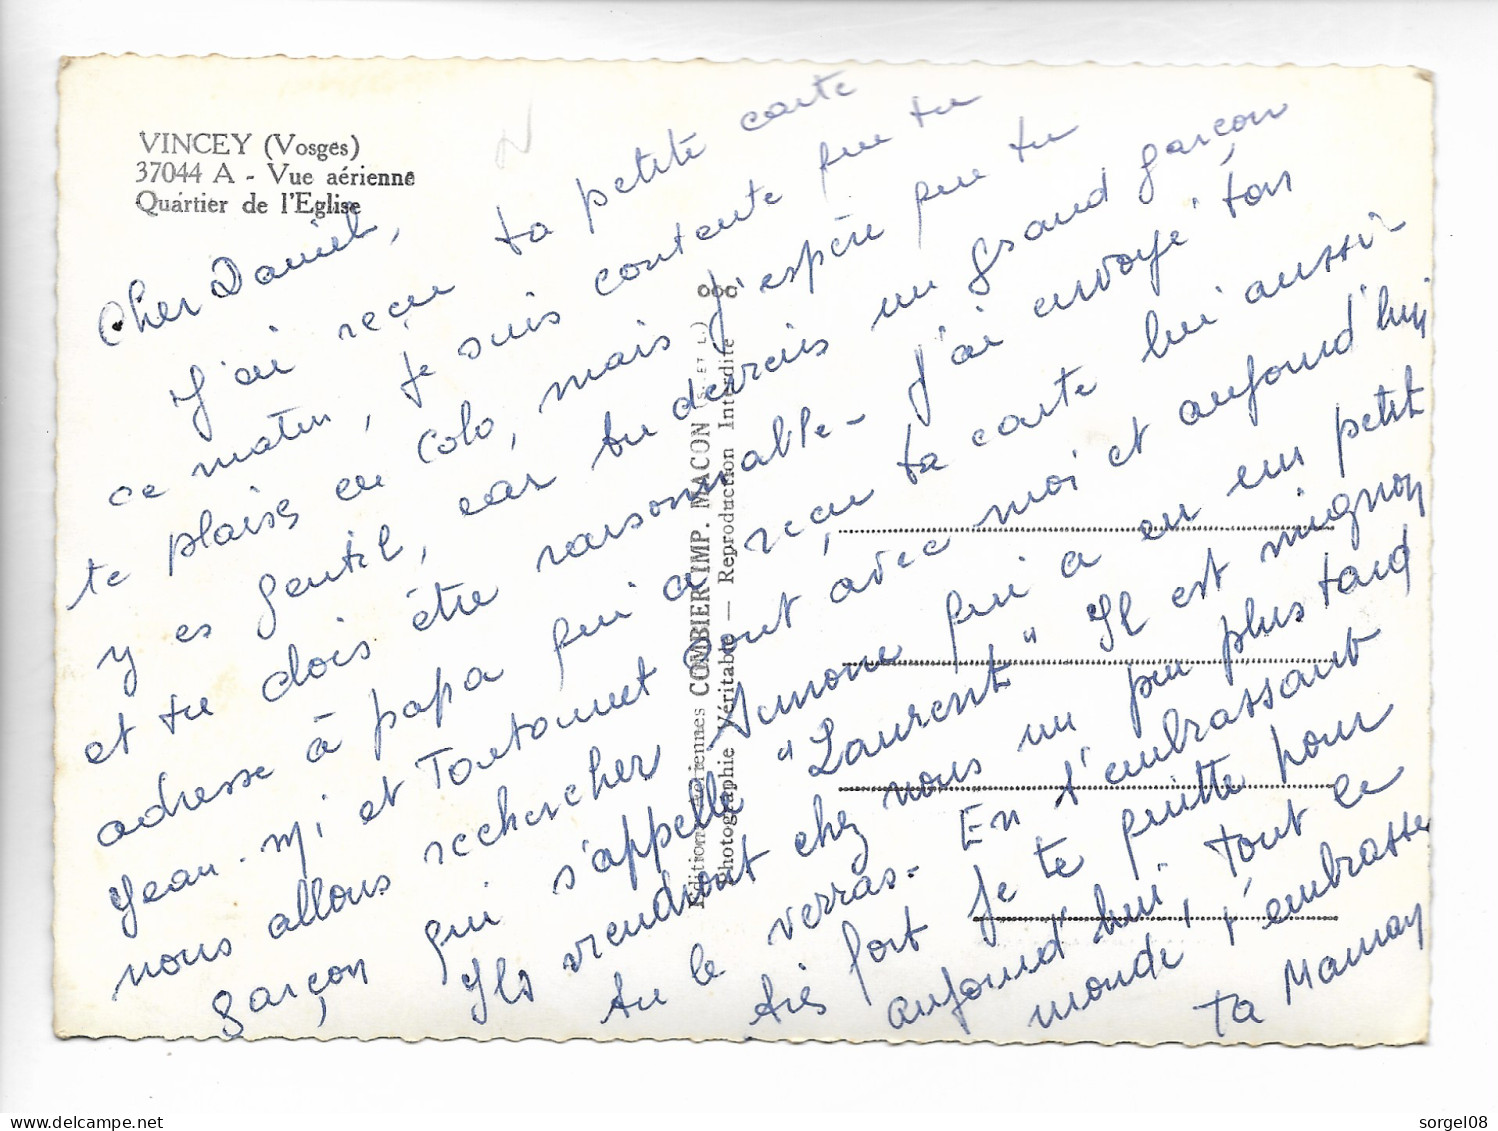 VINCEY (Vosges)
37044 A - Vue aérienne
Quartier de l'Eglise
Cher Daniel,
J'ai reçu ta petite carte
ce matin, je suis contente que tu
te plaises en colo, mais j'espère que tu
y es gentil, car tu devrais un grand garçon
et tu dois être raisonnable - J'ai envoyé ton
adresse à papa qui a reçu ta carte lui aussi -
Jean-Mi et Toutounet sont avec moi et aujourd'hui
nous allons rechercher Simone qui a eu un petit
garçon qui s'appelle "Laurent" Il est mignon
Ils viendront chez nous un peu plus tard
tu le verras - En t'embrassant
très fort je te quitte pour
aujourd'hui, tout le
monde t'embrasse
Ta Maman
Editions Aériennes COMBIER IMP. MACON (S. ET L.)
Photographie Véritable — Reproduction Interdite
sorgel08